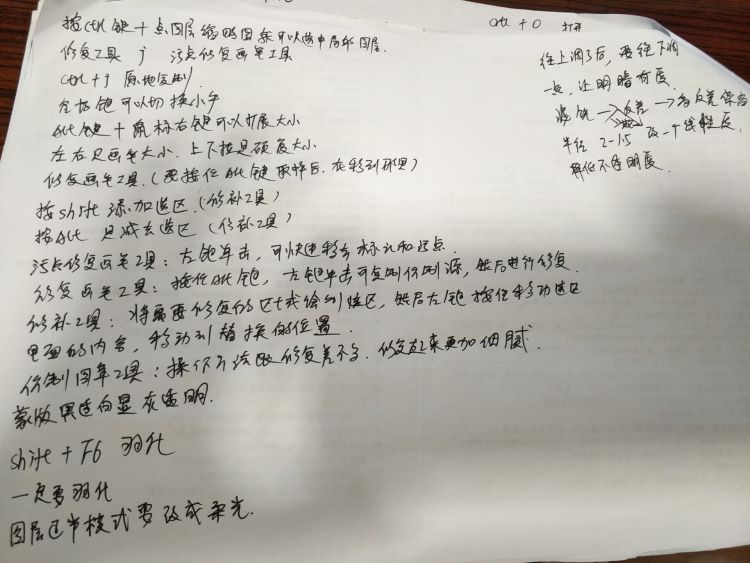 按ctrl键+点图层缩略图来可以选中局部图层
修复工具 j 污点修复画笔工具
ctrl+j 原地复制
空格键可以切换小手
alt键+鼠标右键可以扩展大小
左右是画笔大小.上下拉是硬度大小
修复画笔工具.(要按住alt键取样后.在移到那里)
按shift 添加选区.(修补工具)
按alt 是减去选区(修补工具)
污点修复画笔工具:左键单击,可快速移去标记和污点.
修复画笔工具:按住alt键,左键单击可复制仿制源,然后进行修复.
修补工具:将需要修复的区域绘制选区,然后左键按住移动选区
里面的内容,移动到替换的位置.
仿制图章工具:操作方法跟修复差不多.修复起来更加细腻.
蒙版黑透白显灰透明.
shift + F6 羽化
一定要羽化
图层 模式要改成柔光.
ctrl + O 打开
往上调了后,要往下调
一点,让明暗有度.
滤镜→ →高反差保留
半径 2-1.5 改一个线性度.
降低不透明度.